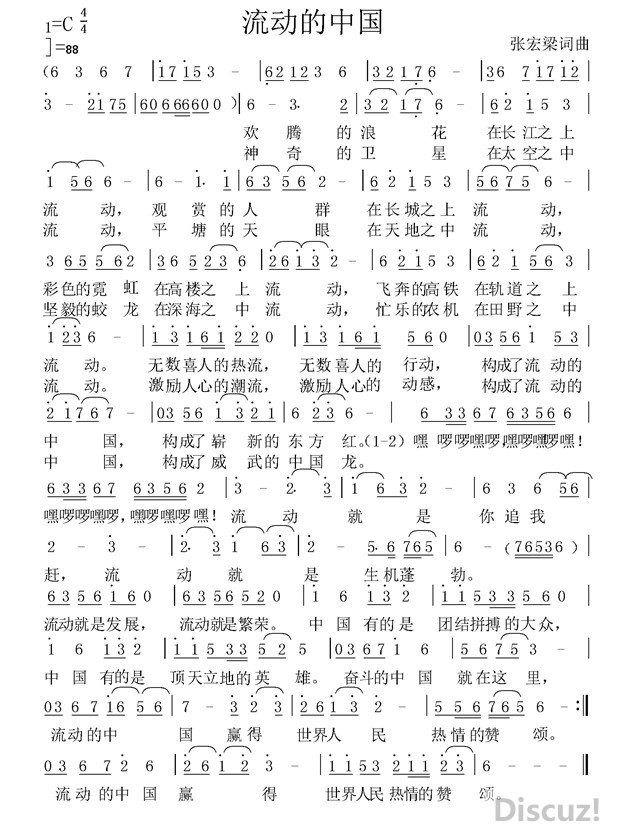 流动的中国
1=C 4/4
张宏梁词曲
♩=88
(6 3 6 7 | 1 7 1 5 3 - | 6 2 1 2 3 6 - | 3 2 1 7 6 - | 3 6 7 1 2 - |
3 - 2 1 7 5 | 6 0 6 6 6 6 0 0 ) | 6 - 3· 2 | 3 2 1 7 6 - | 6 2 1 5 3
欢 腾 的 浪 花 在长江之上
神 奇 的 卫 星 在太空之中
1 5 6 6 - | 6 - 1· 1 | 6 3 5 6 2 - | 6 2 1 5 3 | 5 6 7 5 6 -
流 动， 观 赏 的 人 群 在长城之上 流 动，
流 动， 平 塘 的 天 眼 在天地之中 流 动，
3 6 5 5 6 2 | 3 6 5 2 3 - | 2 6 1 3 2 - | 6 2 1 5 3 | 6 2 1 5 3
彩色的霓 虹 在高楼之 上 流 动， 飞奔的高铁 在轨道之 上
坚毅的蛟 龙 在深海之 中 流 动， 忙乐的农机 在田野之 中
1 2 3 6 - | 1 3 1 6 1 2 2 | 1 3 1 6 1 5 6 0 | 0 3 5 6 1 5 3
流 动。 无数喜人的热流， 无数喜人的 行动， 构成了流 动的
流 动。 激励人心的潮流， 激励人心的 动感， 构成了流 动的
2 1 7 6 7 - | 0 3 5 6 1 3 2 1 | 6 2 3 6 - | 6 3 3 6 7 6 3 5 6 6
中 国， 构成了崭 新的 东 方 红。(1-2) 嘿 啰啰嘿啰,嘿啰嘿啰嘿!
中 国， 构成了威 武的 中 国 龙。
6 3 3 5 6 7 6 3 5 6 6 | 3 - 2· 3 | 1 6 3 - | 6 3 5 6 1
嘿啰啰嘿啰，嘿啰嘿啰嘿! 流 动 就 是 你 追 我
2 - 3 - | 2· 3 1 6 3 | 2 - 5· 6 7 6 5 | 6 - (7 6 5 3 6 )
赶， 流 动 就 是 生机蓬 勃。
6 3 5 6 1 6 0 | 6 3 5 6 5 2 0 | 1 6 1 3 2 | 1 1 5 3 3 5 6 0
流动就是发展， 流动就是繁荣。 中 国 有的 是 团结拼搏的大众，
1 6 1 3 2 | 1 1 5 3 3 5 2 5 | 0 3 6 7 2 | 1 2 3 1 -
中 国 有的是 顶天立地的 英 雄。 奋斗的中 国 就在这 里，
0 3 6 7 6 | 7 - 3 2 3 | 2 1 3 2 - | 5 5 6 7 6 5 | 6 - :‖
流动的中 国 赢 得 世界人 民 热情的赞 颂。
0 3 6 7 2 6 | 2 6 1 2 3 - | 2 1 5 3 2 1 2 3 | 6 - - -
流动的中国 赢 得 世界人民 热情的赞 颂。
Discuz!